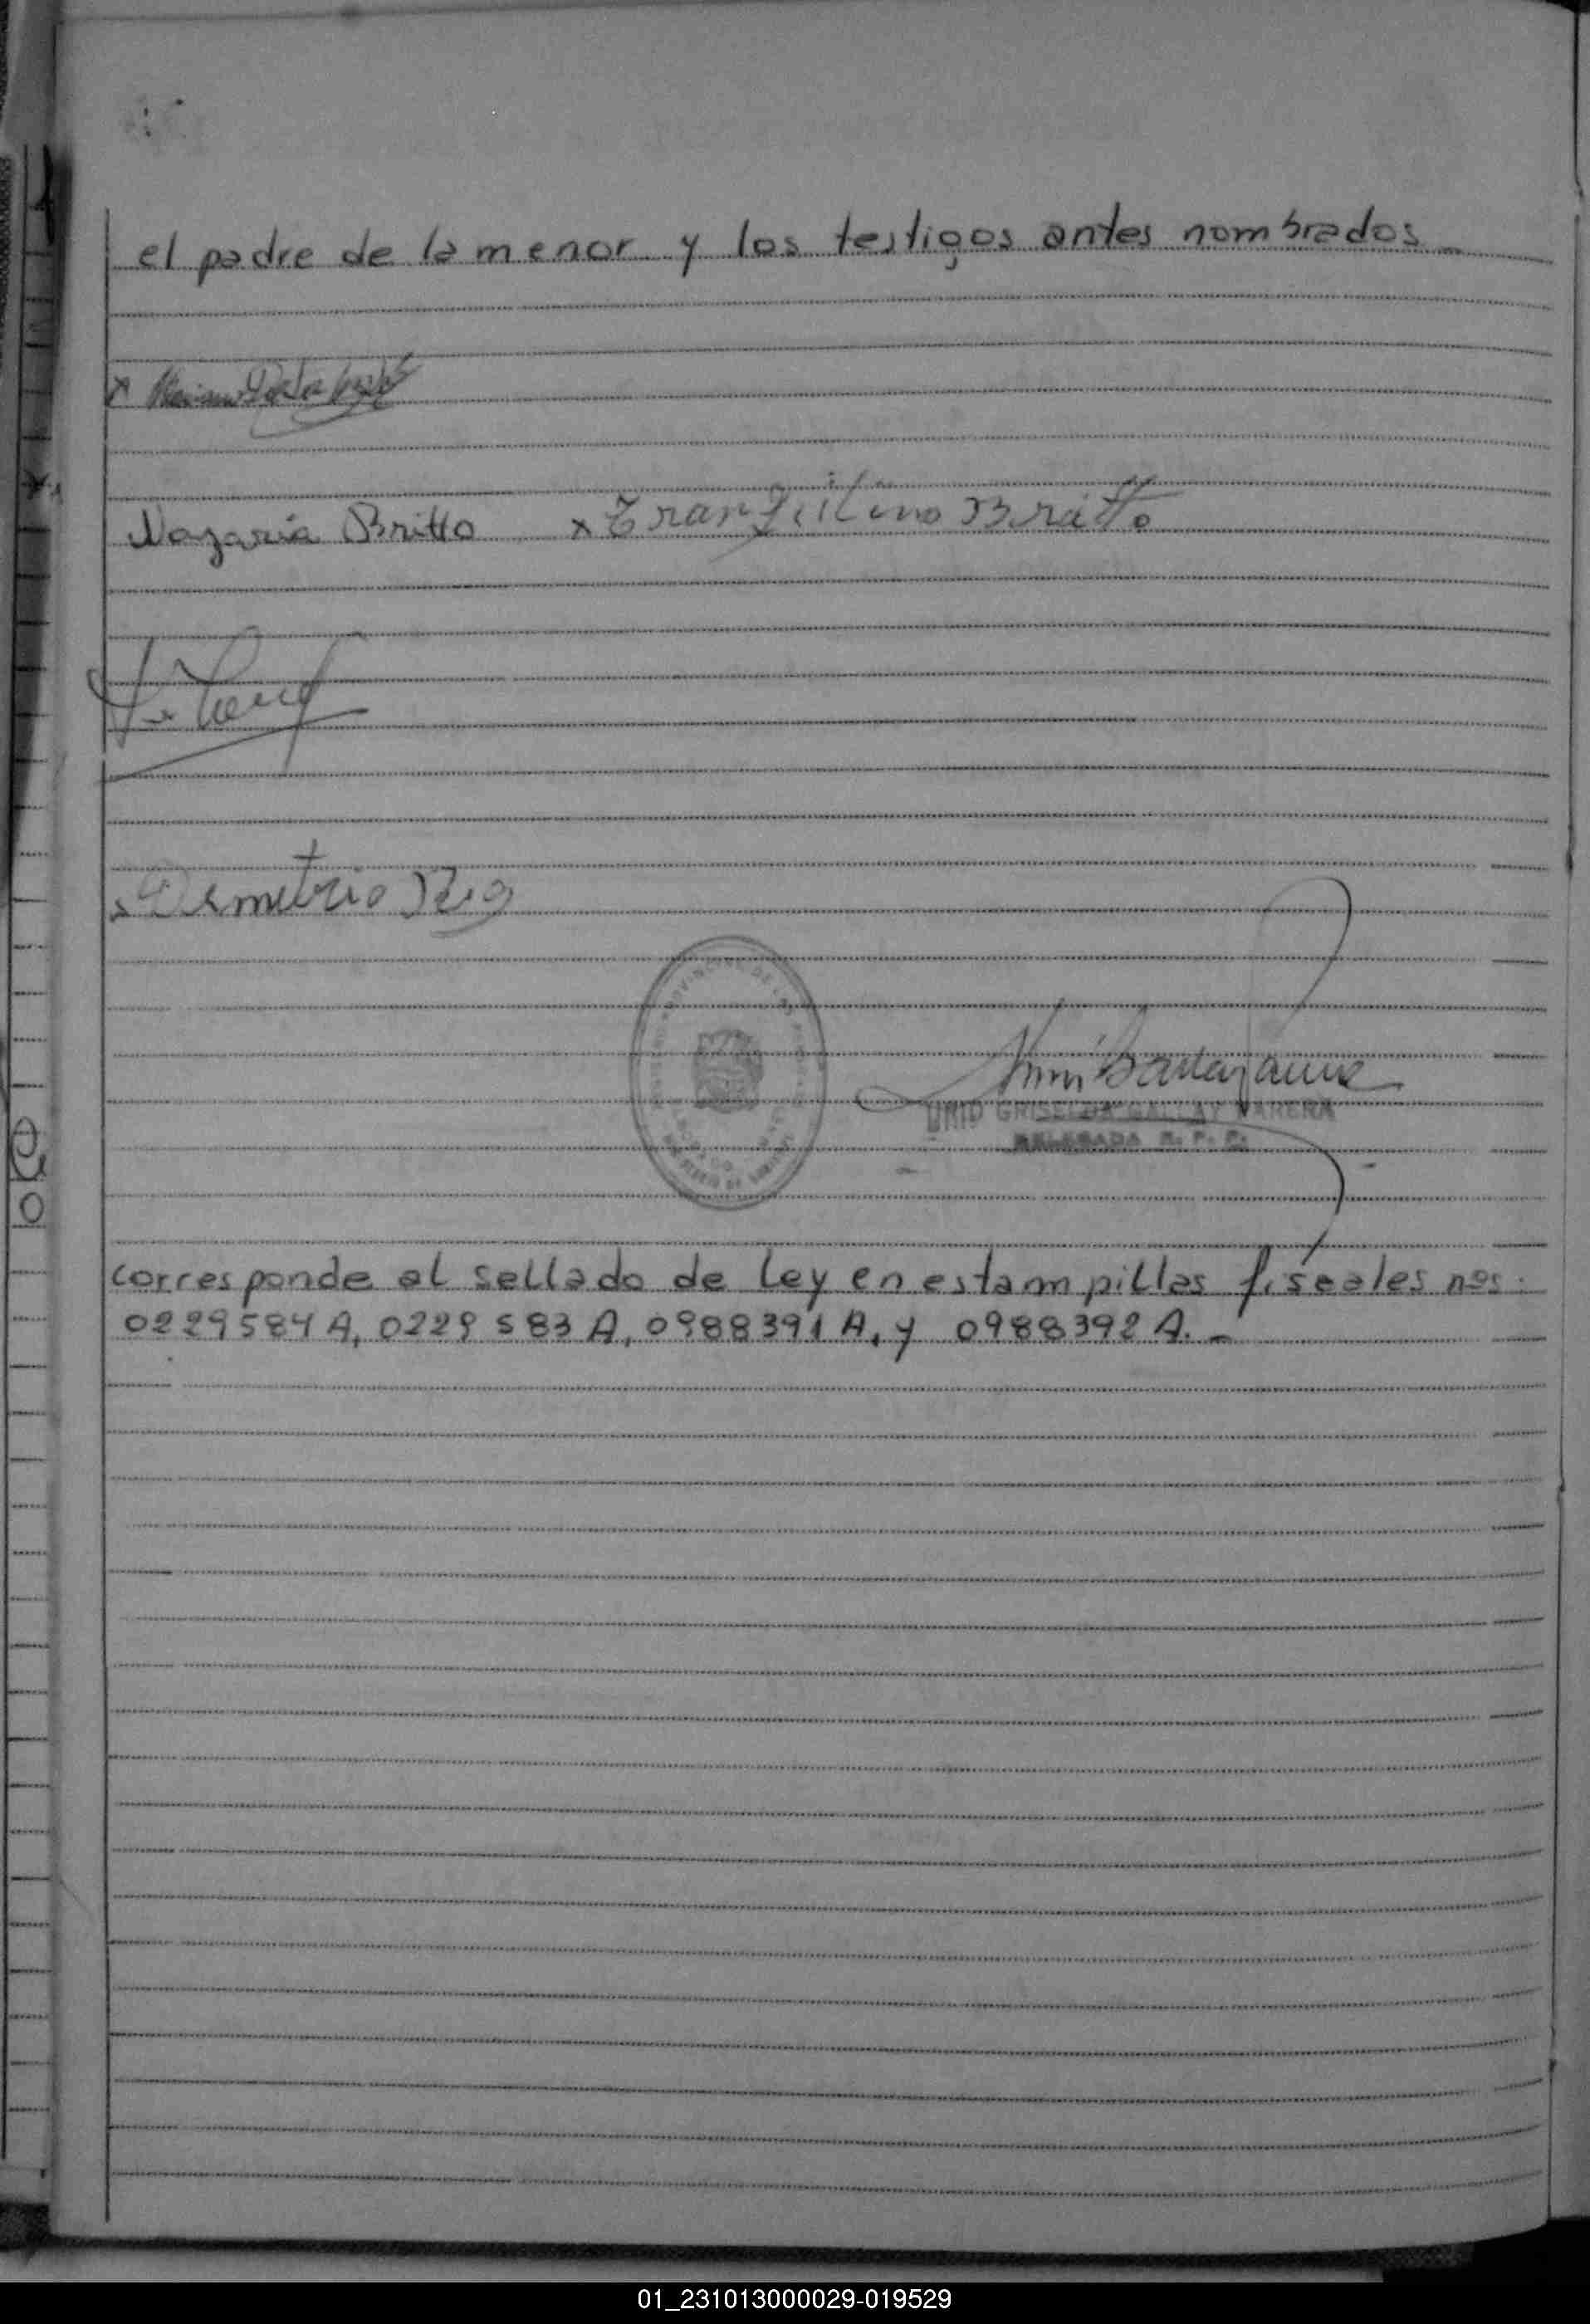 el padre de la menor y los testigos antes nombrados
x
Nazaria Britto x Tranquilino Britto
x Demetrio
PROVINCIA DE
GRISELDA GALLAY
DELEGADA R. P. C.
corresponde al sellado de Ley en estampillas fiscales nos.
0229584 A, 0229583 A, 0988391 A, y 0988392 A. -
01_231013000029-019529